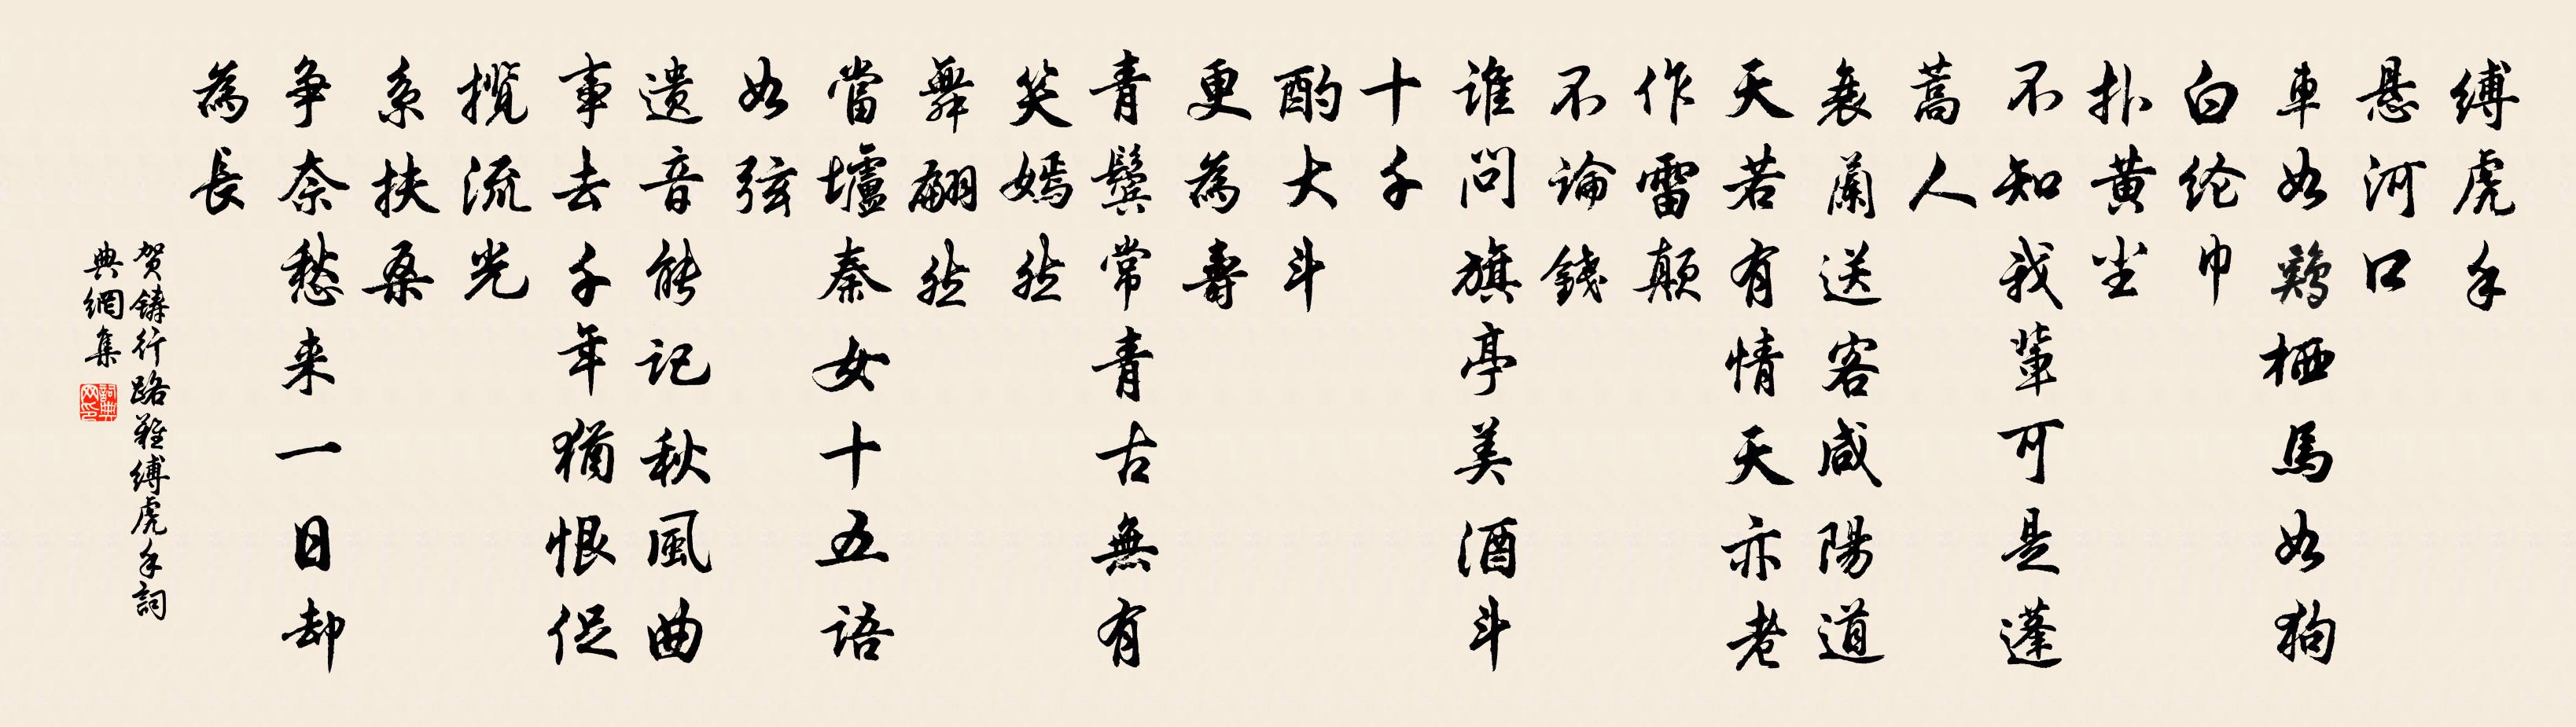 缚虎手
悬河口
車如鷄栖馬如狗
白纶巾
扑黄尘
不知我輩可是蓬
蒿人
衰蘭送客咸陽道
天若有情天亦老
作雷颠
不論錢
谁问旗亭美酒斗
十千
酌大斗
更為壽
青鬓常青古無有
笑嫣然
舞翩然
當壚秦女十五语
如弦
遗音能记秋風曲
事去千年猶恨促
揽流光
系扶桑
争奈愁来一日却
為長
贺鑄行路難缚虎手詞
典網集
詞典网印